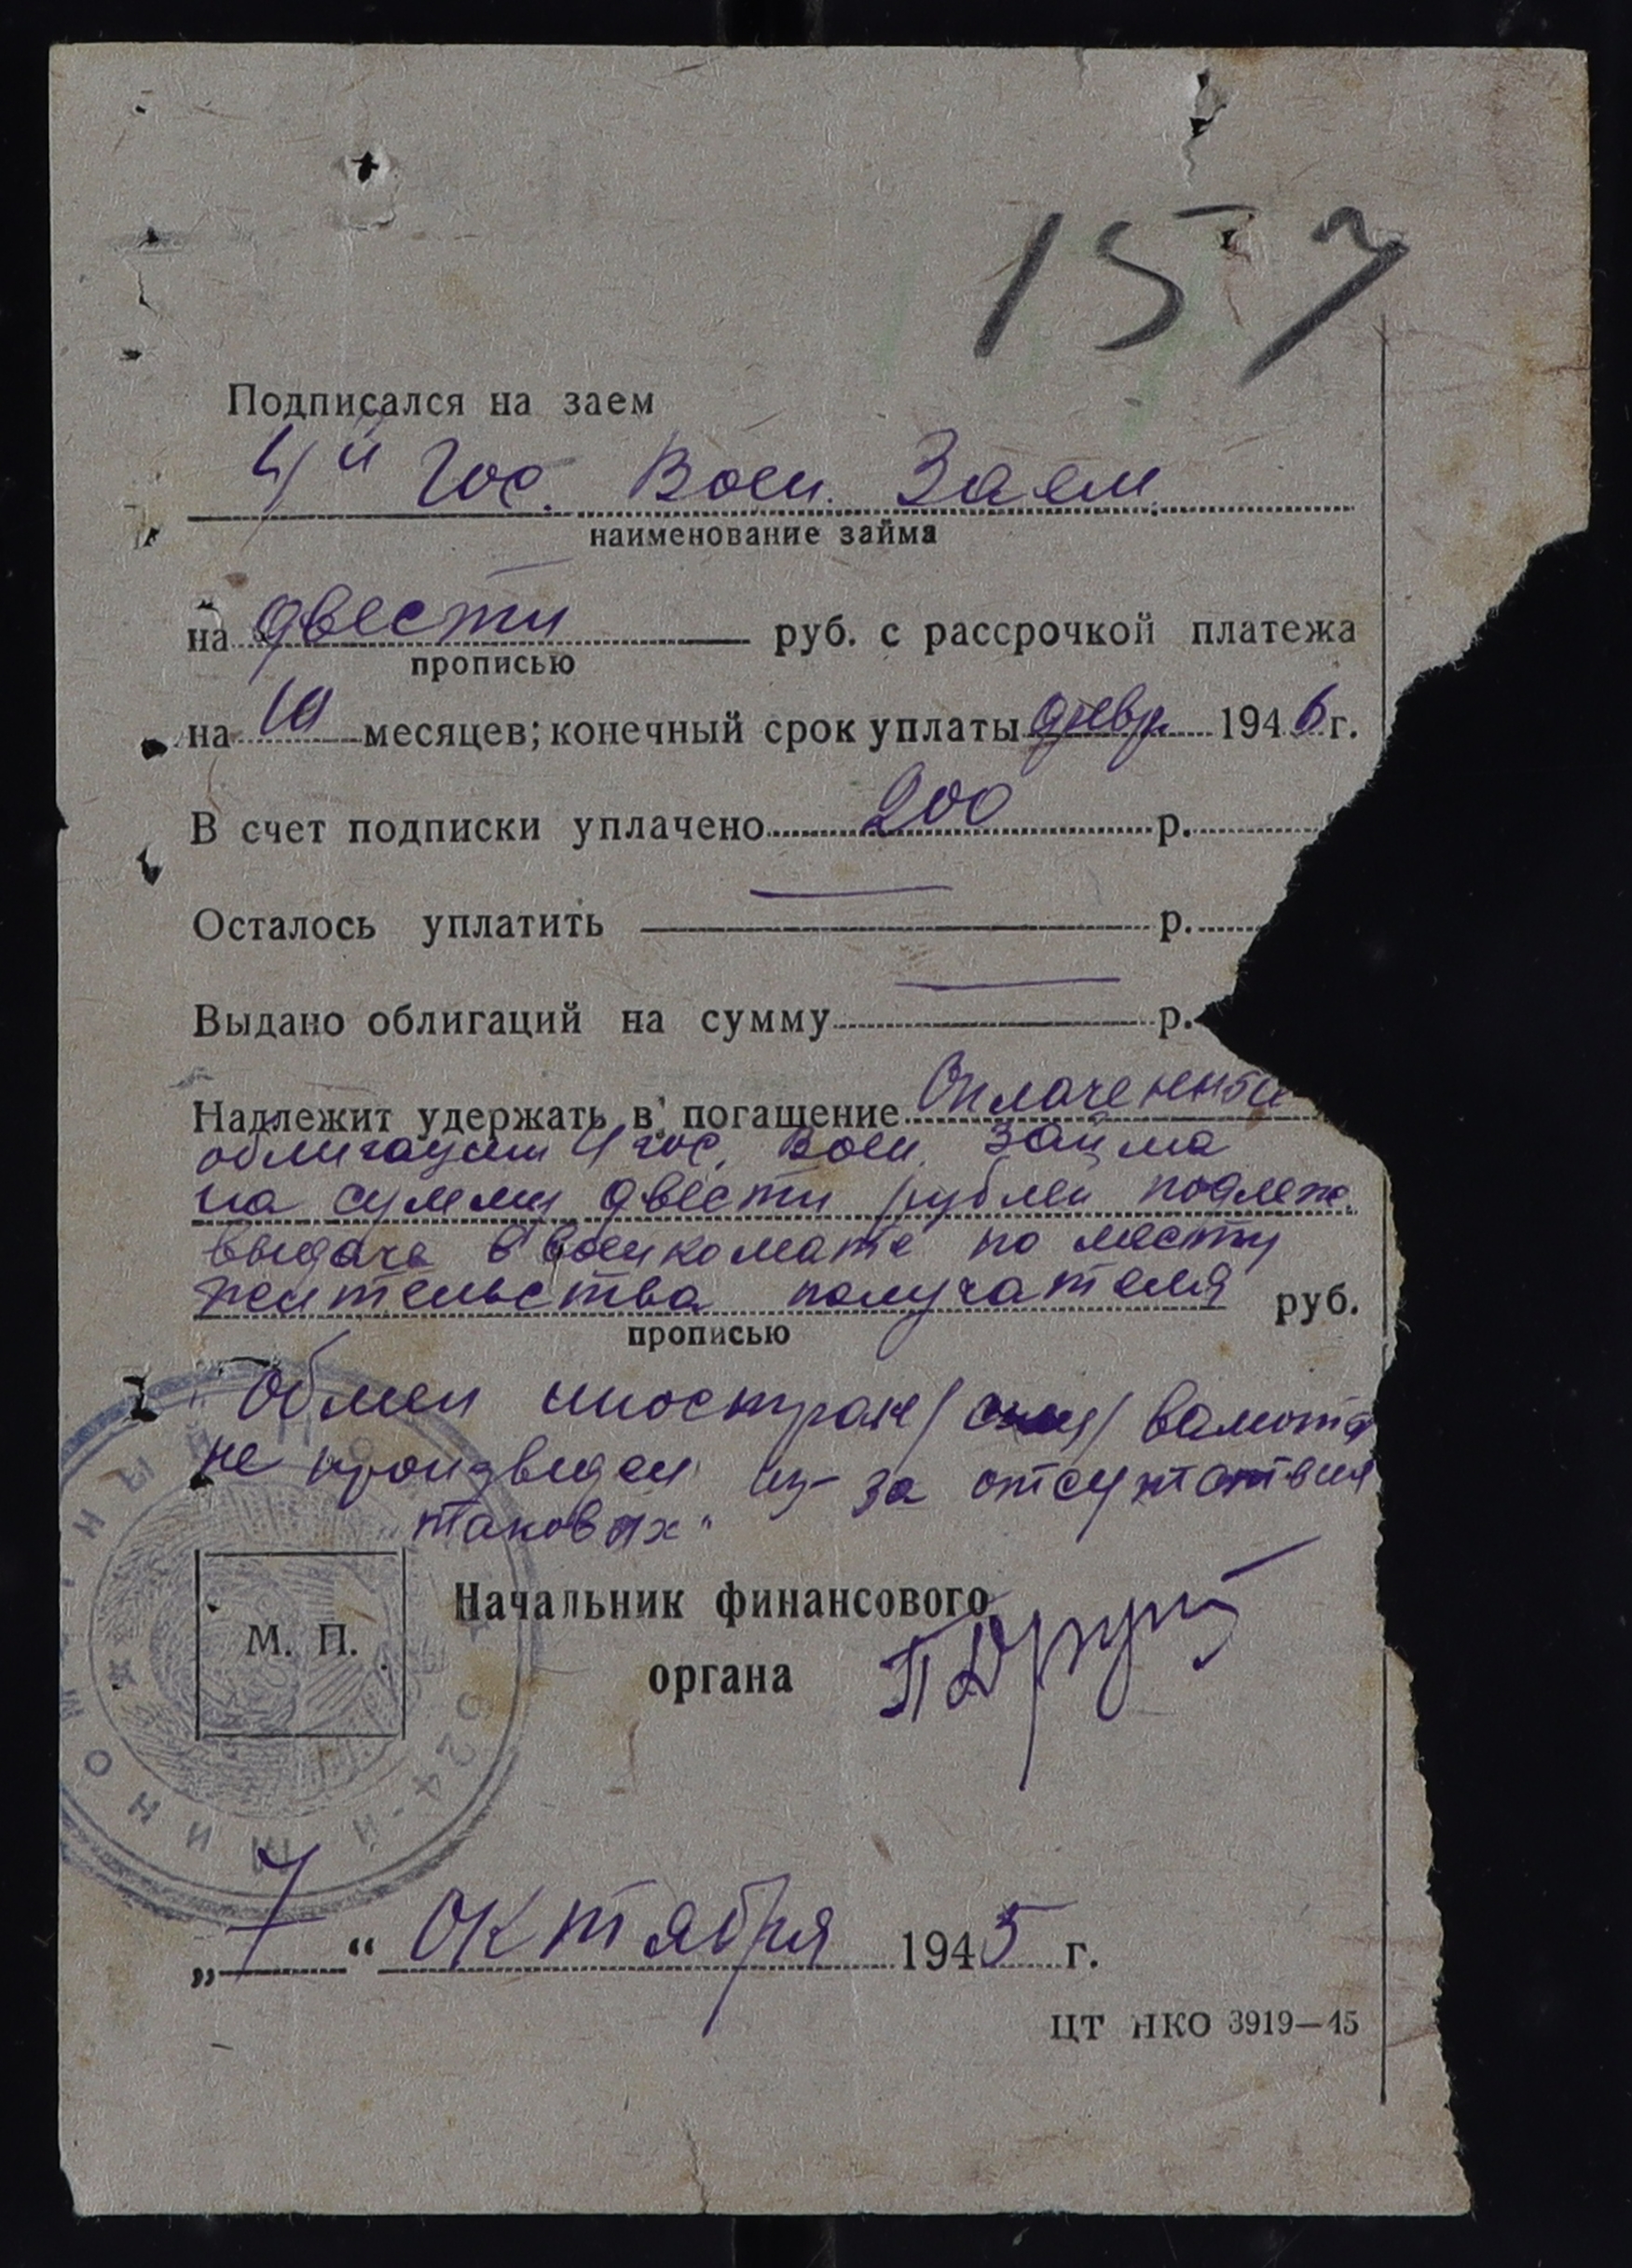 157
Подписался на заем
4й Гос. Воен. Заем.
наименование займа
на двести руб. с рассрочкой платежа
прописью
на 10 месяцев; конечный срок уплаты январ 1946 г.
В счет подписки уплачено 200 р.
Осталось уплатить — р.
Выдано облигаций на сумму — р.
Надлежит удержать в погашение Оплаченные
облигации 4 гос. Воен. Займа
на сумму двести рублей подлеж.
выдаче в военкомате по месту
жительства получателя руб.
прописью
Обмен иностран/ /валюты
не произведен из-за отсутствия
"таковых"
М. П.
Начальник финансового
органа
„7“ Октября 1945 г.
ЦТ НКО 3919—45